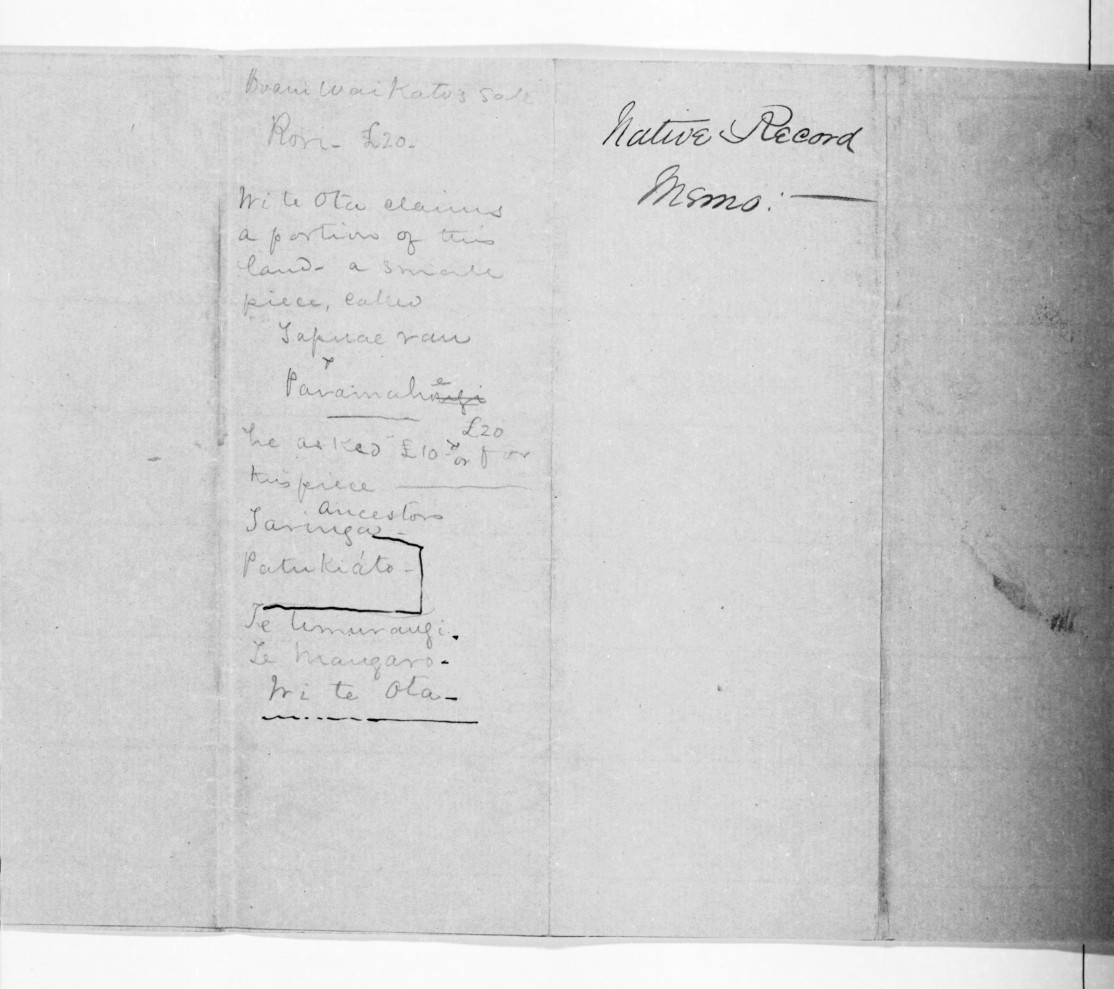 Waikato's sale
£20-
Wi te Ota claims
a portion of this
land- a small
piece, called
Tapuae rau
x
Paraimahe
£20
he asked £10 x or for
this piece
ancestors
Taringa-
Patukiáto-
Te Umurangi.
Te Mangaro-
Wi te Ota-
Native Record
Memo: